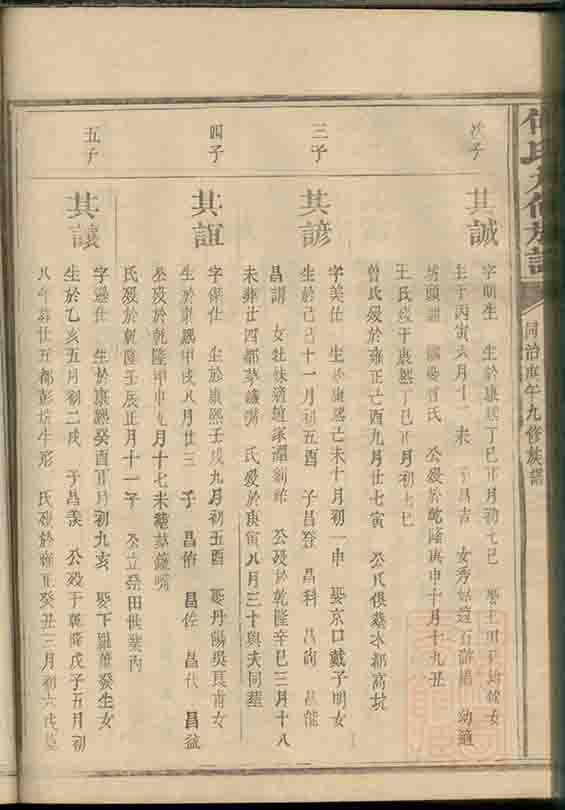 氏 修族譜
同治庚午九修族譜
次子
其誠
字明生 生於康熙丁巳正月初七巳 娶王
生于丙寅六月十一未 子昌吉 女秀 適石 幼適
曾氏 公歿於乾隆庚申十月十九丑
王氏歿于康熙丁巳正月初七巳
曾氏歿於雍正己酉九月廿七寅 公氏俱墓水都高坑
三子
其諺
字美仕 生於康熙己未十月初一申 娶京口戴子明女
生於己巳十一月初五酉 子昌登 昌科 昌尚 昌能
昌謂 女壯妹適 家潭劉 公歿於乾隆辛巳三月十八
未葬廿四都茅 氏歿於庚寅八月三十與夫同墓
四子
其誼
字傑仕 生於康熙壬戌九月初五酉 娶丹陽吳良甫女
生於康熙甲戌八月廿三 子昌佑 昌佐 昌代 昌益
公歿於乾隆甲申九月十七未墓茅
氏歿於乾隆壬辰正月十一午 公立烝田
五子
其讓
字遜仕 生於康熙癸酉正月初九亥 娶下羅蕭發生女
生於乙亥五月初二戌 子昌羨 公歿于乾隆戊子五月初
八午葬廿五都彭坑牛形 氏歿於雍正癸丑三月初六戌墓